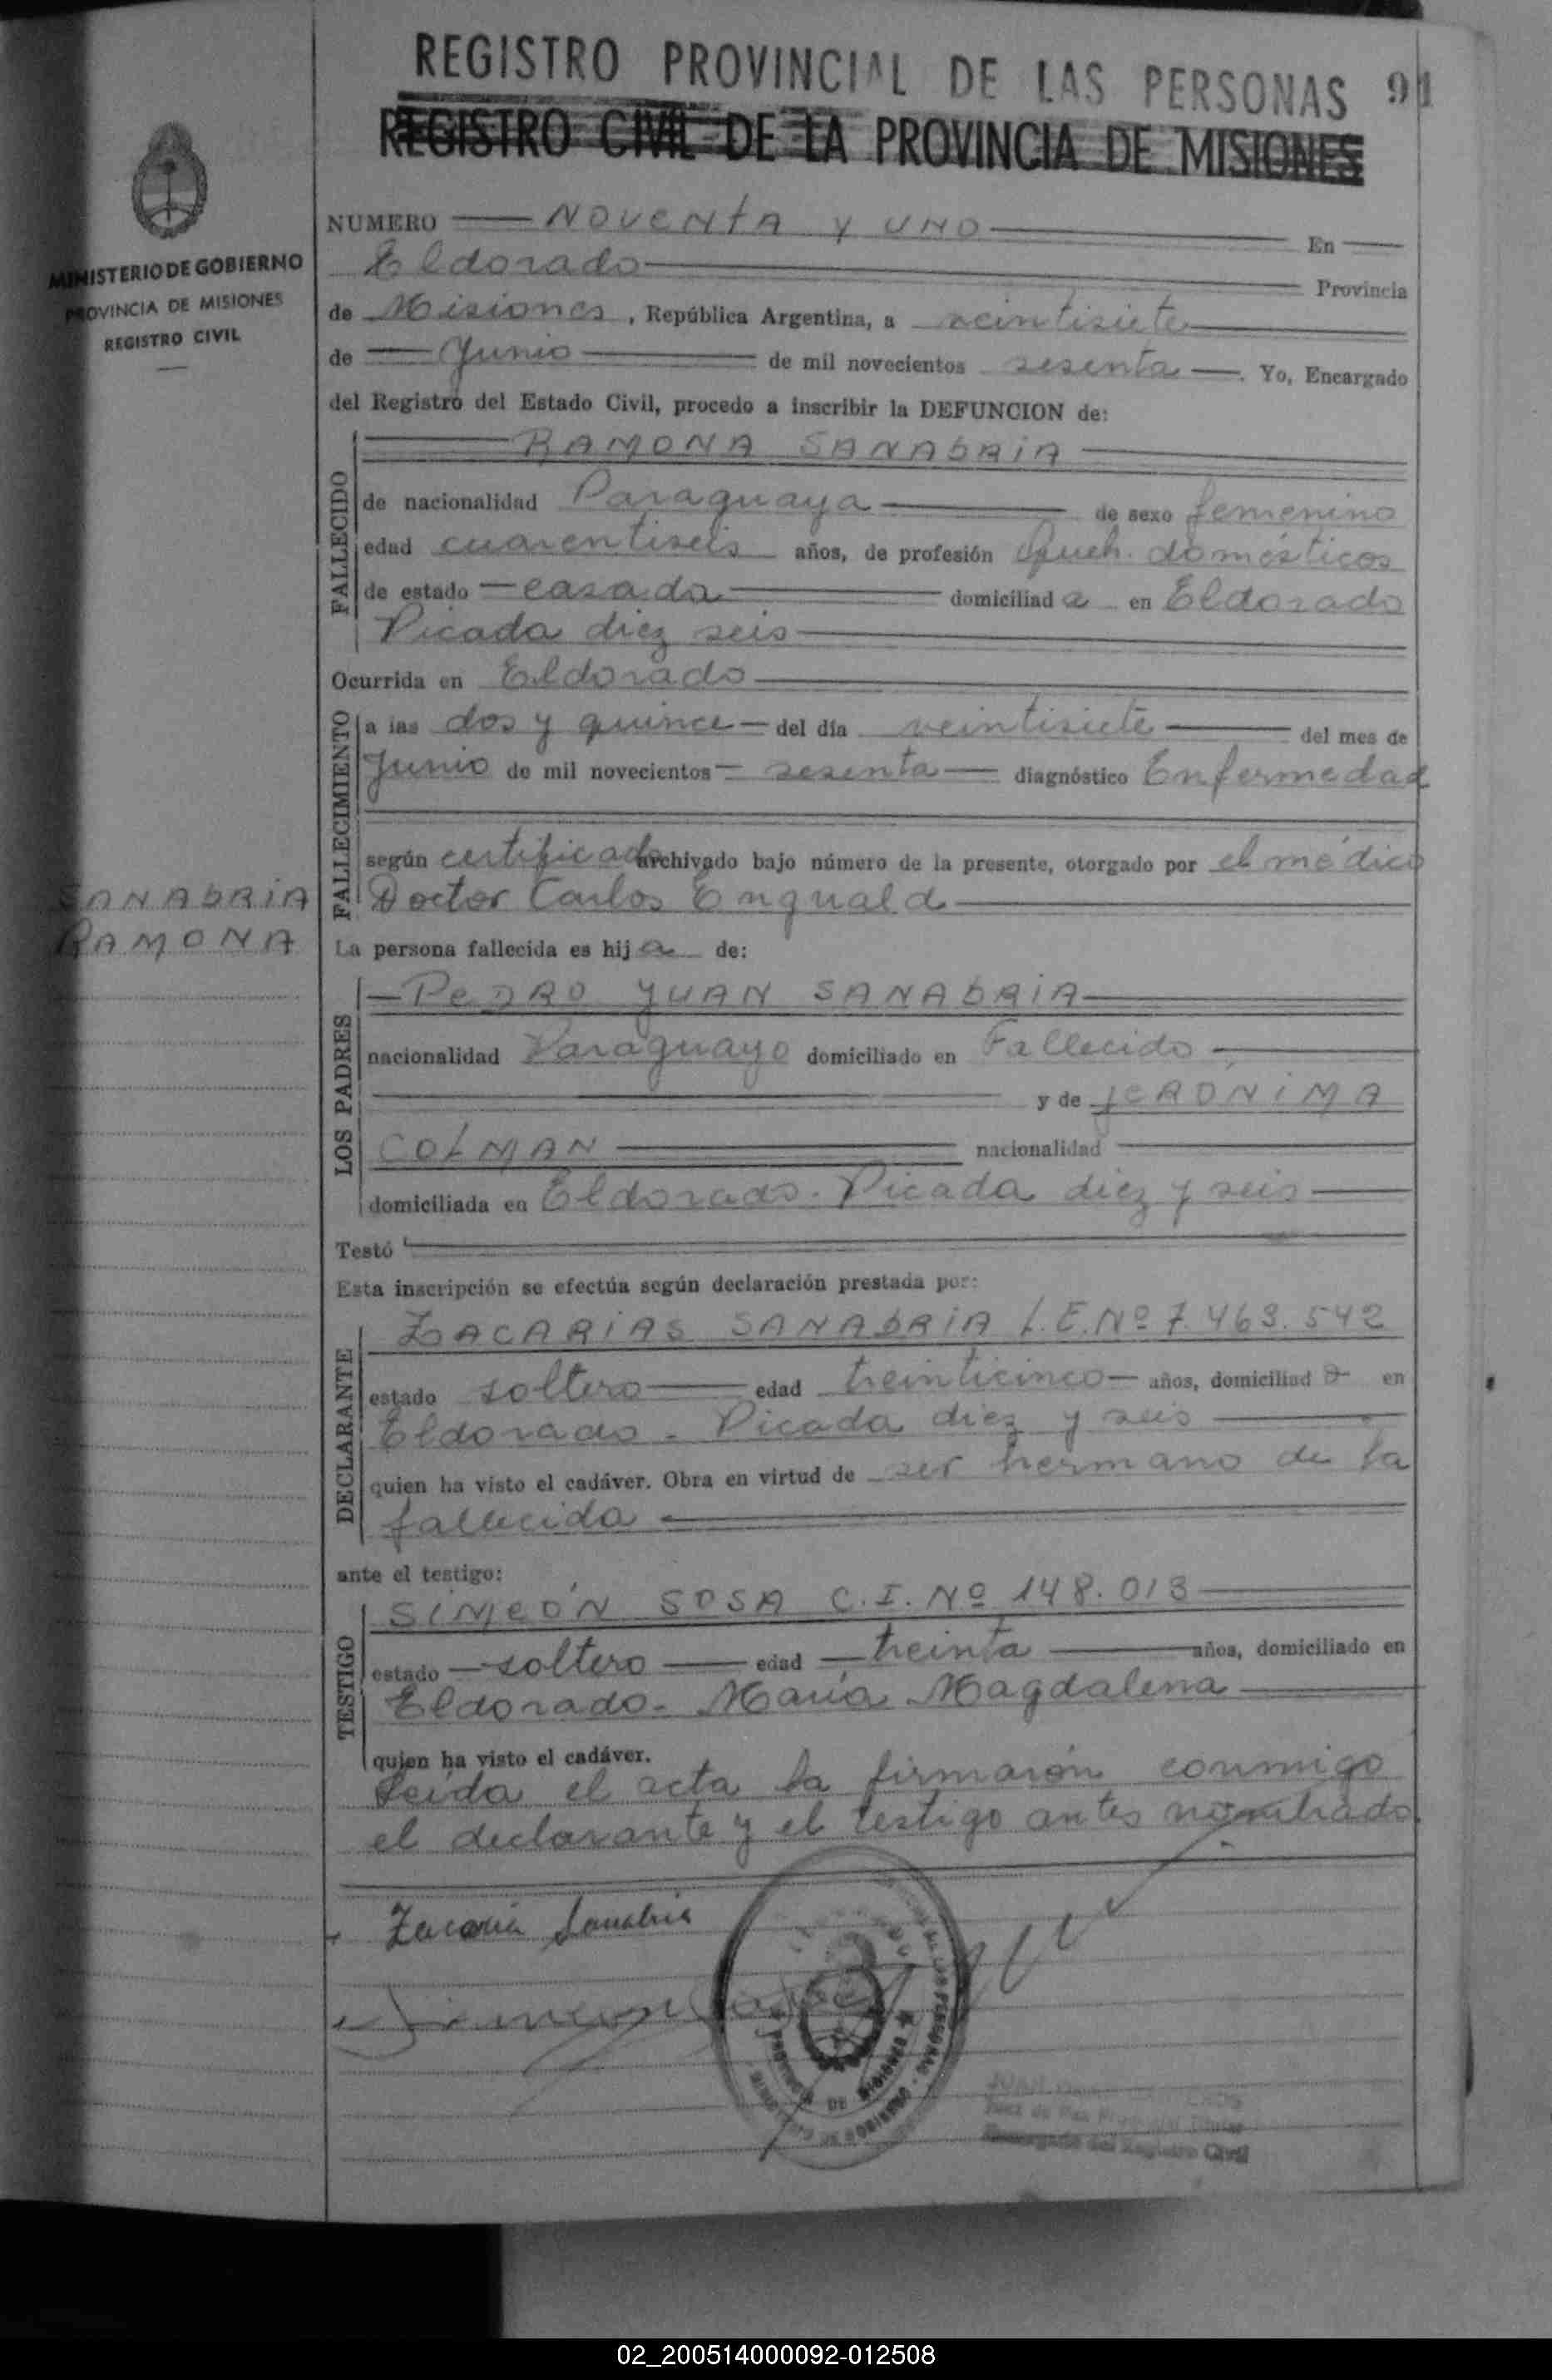 REGISTRO PROVINCIAL DE LAS PERSONAS 91
REGISTRO CIVIL DE LA PROVINCIA DE MISIONES
MINISTERIO DE GOBIERNO
PROVINCIA DE MISIONES
REGISTRO CIVIL
NUMERO NOVENTA Y UNO En
Eldorado Provincia
de Misiones, República Argentina, a veintisiete
de Junio de mil novecientos sesenta. Yo, Encargado
del Registro del Estado Civil, procedo a inscribir la DEFUNCION de:
FALLECIDO
RAMONA SANABRIA
de nacionalidad Paraguaya de sexo femenino
edad cuarentiseis años, de profesión Queh. domésticos
de estado casada domiciliada en Eldorado
Picada diez seis
Ocurrida en Eldorado
FALLECIMIENTO
a las dos y quince del día veintisiete del mes de
Junio de mil novecientos sesenta diagnóstico Enfermedad
según certificado archivado bajo número de la presente, otorgado por el médico
Doctor Carlos Enguald
SANABRIA
RAMONA
La persona fallecida es hija de:
LOS PADRES
PEDRO JUAN SANABRIA
nacionalidad Paraguayo domiciliado en Fallecido
y de JERÓNIMA
COLMAN nacionalidad
domiciliada en Eldorado. Picada diez y seis
Testó
Esta inscripción se efectúa según declaración prestada por:
DECLARANTE
ZACARIAS SANABRIA L.E.Nº 7.463.542
estado soltero edad treinticinco años, domiciliado en
Eldorado - Picada diez y seis
quien ha visto el cadáver. Obra en virtud de ser hermano de la
fallecida
ante el testigo:
TESTIGO
SIMEÓN SOSA C.I. Nº 148.013
estado soltero edad treinta años, domiciliado en
Eldorado - María Magdalena
quien ha visto el cadáver.
Leída el acta la firmarón conmigo
el declarante y el testigo antes nombrado.
Zacaria Sanabria
PROVINCIA DE MISIONES
Encargado del Registro Civil
02_200514000092-012508